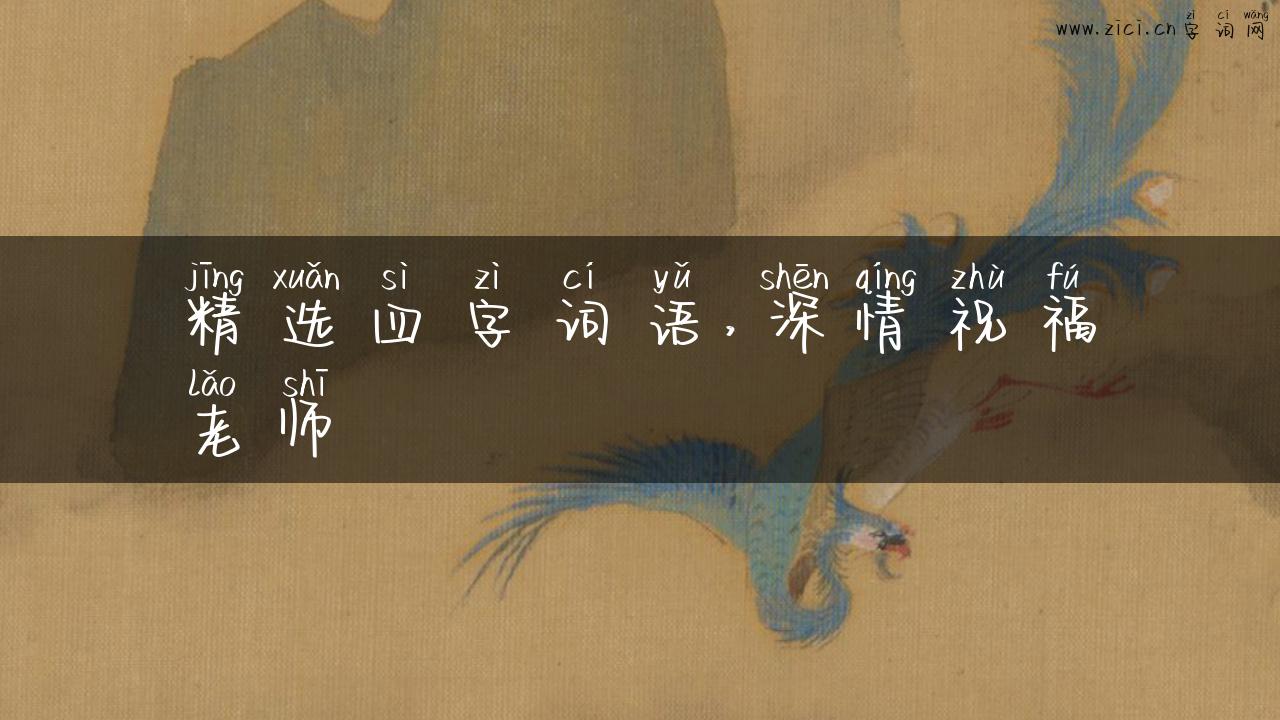 zì cí wǎng
www.zici.cn字词网
jīng xuǎn sì zì cí yǔ shēn qíng zhù fú
精选四字词语,深情祝福
lǎo shī
老师